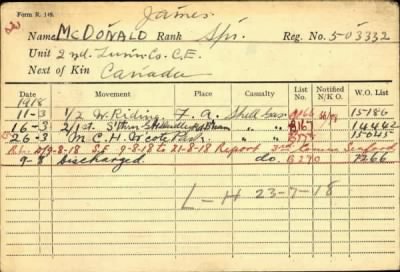 Form R. 149.
James.
Name McDONALD Rank Spr. Reg. No. 503332
Unit 2nd. Tunn. Co. C.E.
Next of Kin Canada
Date Movement Place Casualty List No. Notified N/K O. W.O. List
1918
11-3 1/2 W. Riding F. A. Shell Gas. 15186
16-3 2/1st. " " B16 14442
26-3 M C H W'cote Park. " " 15045
9-8-18 to 21-8-18 Report 3rd Comm Seaford
9-8 Discharged. do. B290 7266
L-H 23-7-18